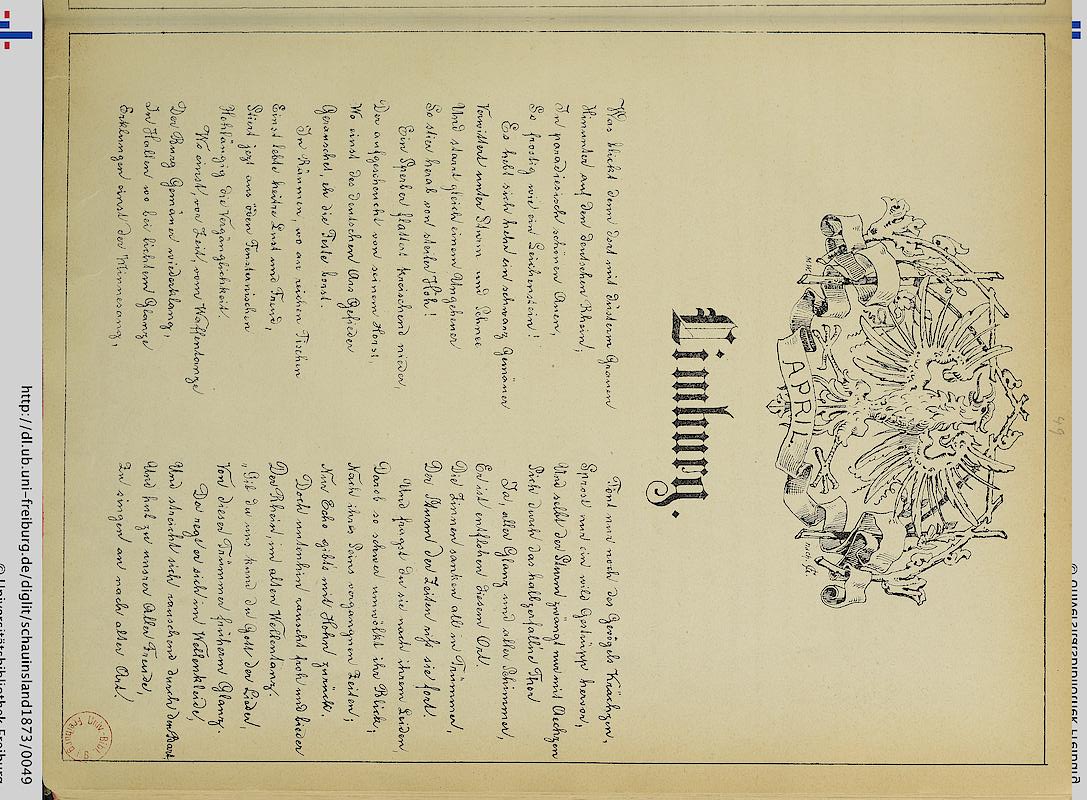 49
APRIL.
Limburg.
Was blickt denn dort mit düsterm Grauen
Hinunter auf den deutschen Rhein;
In paradiesisch schönen Auen,
So frostig wie ein Leichenstein!
Es hebt sich hehr ein schwarz Gemäuer
Verwittert unter Sturm und Schnee
Und starrt gleich einem Ungeheuer
So stier herab von steiler Höh!
Ein Sperber flattert kreischend nieder,
Der aufgescheucht von seinem Horst,
Wo einst des deutschen Aars Gefieder
Gerauschet, eh die Feste borst.
In Räumen, wo an reichen Tischen
Einst lebte heitre Lust und Freud,
Stiert jezt aus öden Fensternischen
Hohläugig die Vergänglichkeit.
Wo einst, vor Zeit, vom Waffentanze
Der Burg Gemäuer wiederklang,
In Hallen wo bei lichtem Glanze
Erklungen einst der Minnesang,
Tönt nur noch des Gevögels Krächzen,
Sprost nur ein wild Gestrüpp hervor,
Und selbst der Sturm zwängt nur mit Aechzen
Sich durch das halbzerfall'ne Thor
Ja, aller Glanz und aller Schimmer,
Er ist entflohen diesem Ort
Die Zinnen sanken all in Trümmer,
Der Sturm der Zeiten riss sie fort.
Und fragst du sie nach ihrem Leiden,
Darob so schwer umwölkt ihr Blick;
Nach ihres Seins vergangnen Zeiten;
Nur Echo gibts mit Hohn zurück.
Doch untenhin rauscht froh und bieder
Der Rhein, im alten Wellentanz.
„Gib du uns kund du Gott der Lieder,
Von dieser Trümmer früherm Glanz.
Da regt er sich im Wellenkleide,
Und streicht sich rauschend durch den Bart,
Und hub zu unsrer Aller Freude,
Zu singen an nach alter Art
Univ. Bibl.
Freiburg
http://dl.ub.uni-freiburg.de/diglit/schauinsland1873/0049
© Universitätsbibliothek Freiburg